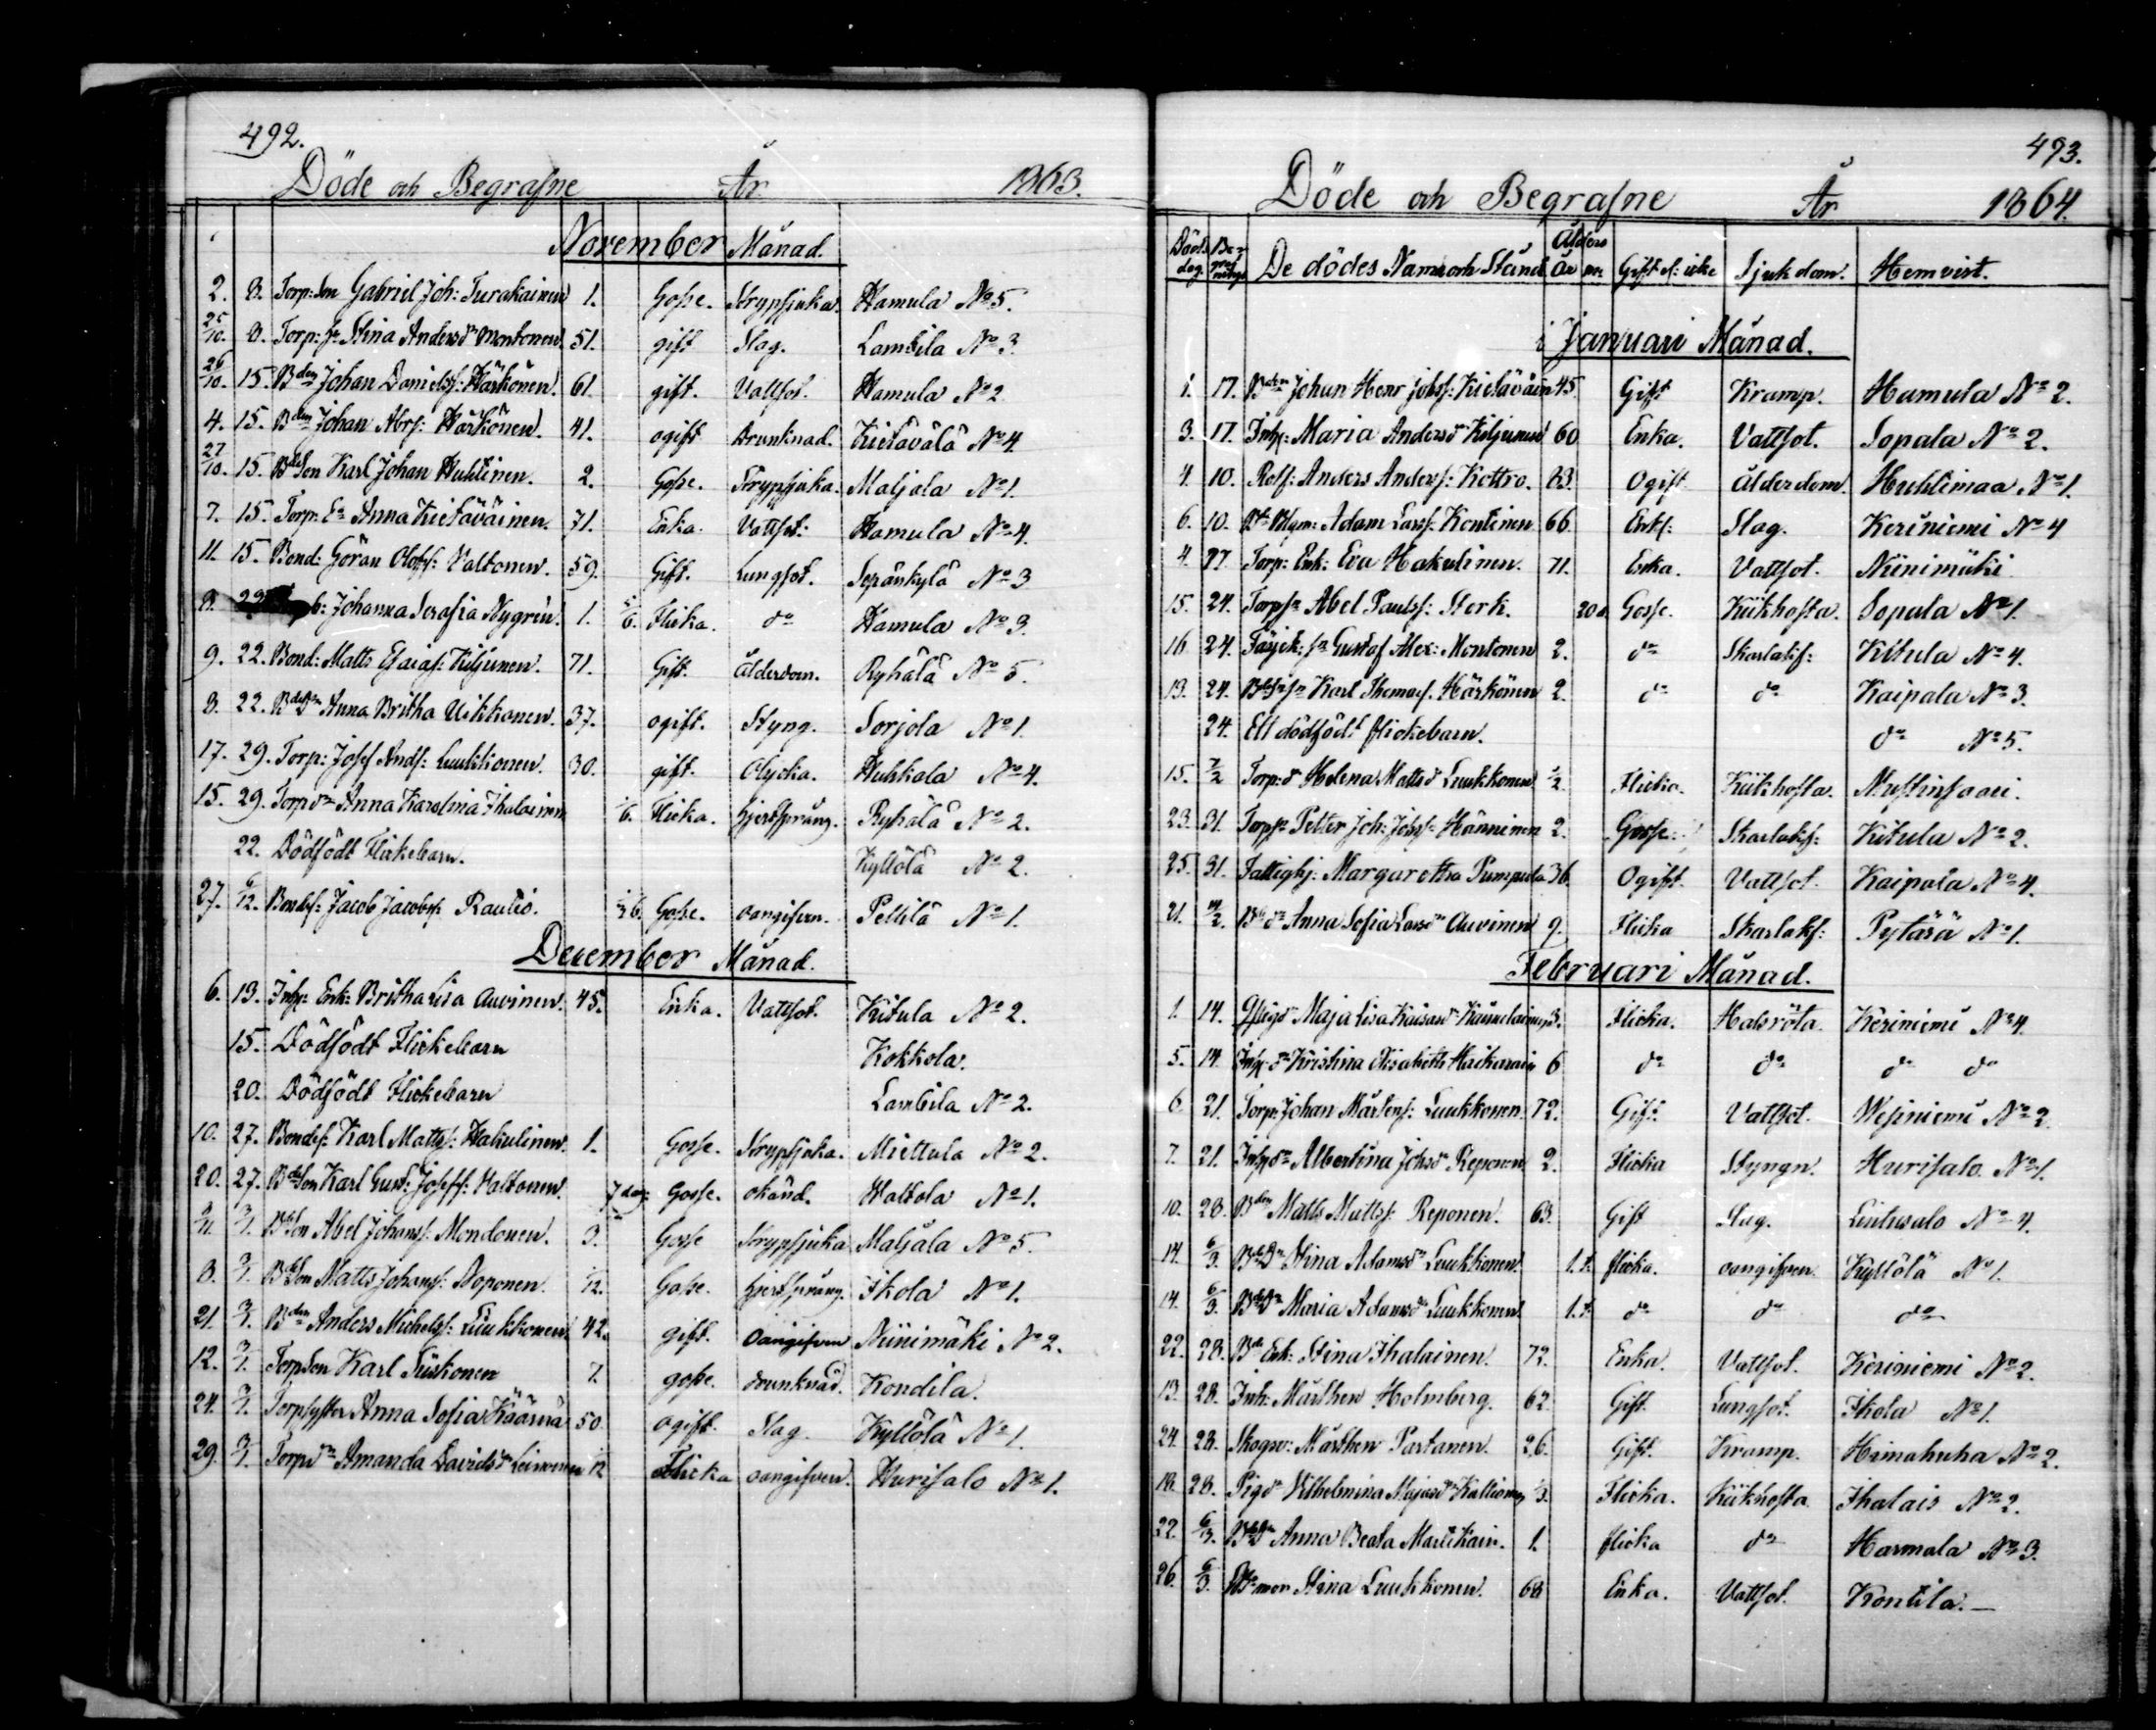 492.
Döde och Begrafne År 1863.
November Månad.
2. 8. Torp: Son Gabriel Joh: Turakainen 1. Gosse. Strypsjuka. Hamula No 5.
25/10. 8. Torp: Stina Andersdr Montonen 51. gift Slag. Lambila No 3.
26/10. 15. Bden Johan Danielss: Härkönen. 61. gift. Vattsot. Hamula No 2
4. 15. Bden Johan Abrs: Härkönen. 41. ogift Drunknad. Kietävälä No 4.
27/10. 15. BdeSon Karl Johan Huhtinen. 2. Gosse. Strypsjuka. Maljala No 1.
7. 15. Torp: Ea Anna Kietäväinen. 71. Enka. Vattsot: Hamula No 4.
11. 15. Bond: Göran Olofs: Valtonen. 59. Gift. Lungsot. Sepänkylä No 3
8. 29 Johanna Serafia Nygrén. 1. 6. Flicka. do Hamula No 3.
9. 22. Bond: Matts Esaias: Kiljunen. 71. Gift. ålderdom. Ryhälä No 5.
8. 22. Anna Britha Ukkonen. 37. ogift. Styng. Sorjola No 1.
17. 29. Torp: Josef Ands: Luukkonen. 30. gift. Olycka. Huhkala No 4.
15. 29. Torpdr Anna Karolina Ihalainen 6. Flicka. hjertsprång. Ryhälä No 2.
22. Dödfödt Flickebarn. Kyllölä No 2.
27. 6/12. Bondes: Jacob Jacobss Rautio. Gosse. oangifven. Pellilä No 1.
December Månad.
6. 13. Inhs: Enk: Britha Lisa Auvinen. 45. Enka. Vattsot. Kitula No 2.
15. Dödfödt Flickebarn Kokkola.
20. Dödfödt Flickebarn Lambila No 2.
10. 27. Bondes: Karl Mattss: Hakulinen. 1. Gosse. Strypsjuka. Miettula No 2.
20. 27. BdeSon Karl Gust: Josefs: Valtonen. 7 dag: Gosse. okänd. Haltola No 1.
3/1. BdeSon Abel Johanss: Mondonen. 3. Gosse Strypsjuka Maljala No 5.
8. 3/1. BdeSon Matts Johanss: Noponen. 12. Gosse. hjertsprång. Ikola No 1.
21. 3/1. Bden Anders Michelss: Luukkonen 42. gift. Oangifven Niinimäki No 2.
12. 3/1. Torp Son Karl Siiskonen 7. gosse. drunknad. Kondila.
24. 3/1. Torpsyster Anna Sofia Käärnä 50. ogift. Slag. Kyllölä No 1.
29. 3/1. Torpdr Amanda Davidsdr Leinonen 12 Flicka oangifven. Hurisalo No 1.
493.
Döde och Begrafne År 1864.
Döds dag. Begrafnings De dödes Namn och Stånd Ålders År m: Gift el: icke Sjukdom. Hemvist.
i Januari Månad.
1. 17. Bden Johan Henr Johss: Kietäväin 45. Gift Kramp. Hamula No 2.
3. 17. Inhs: Maria Andersdr Kiljunen 60 Enka. Vattsot. Sopala No 2.
4. 10. Rotf: Anders Anderss: Kettro. 83. Ogift. Ålderdom. Huhtimaa No 1.
6. 10. Adam Larss: Kontinen 66. Enkl: Slag. Keriniemi No 4
4. 17 Torp: Enk: Eva Hakulinen. 71. Enka. Vattsot. Niinimäki
15. 24. Torpsn Abel Paulss: Stork. 20 d. Gosse. Kikhosta. Sopala No 1.
16. 24. Gustaf Alex: Montonen 2. do Skarlaks: Kitula No 4.
13. 24. Karl Thomas. Härkönen 2. do do Kaipala No 3.
24. Ett dödfödt flickebarn. do No 5.
15. 7/2 Torp: dr Helena Mattsdr Luukkonen 1/2. Flicka. Kikhosta. Mustinsaari.
23. 31. Torpsn Petter Joh: Johss: Hänninen 2. Gosse. Skarlaks: Kitula No 2.
25. 31. Fattighj: Margaretha Pumpula 36. Ogift. Vattsot. Kaipala No 4.
21. 14/2. Bdr Anna Sofia Larsdr Auvinen 9. Flicka Skarlaks: Pytärä No 1.
Februari Månad.
1. 14. Maja Lisa Kaisasdr 3. Flicka. Halsröta. Keriniemi No 4.
5. 14. Inhs: dr Kristina Elisabeth Haikarain 6 do do do do
6. 21. Torp: Johan Mårtens: Luukkonen. 72. Gift Vattsot. Wesiniemi No 2.
7. 21. Inhsdr Albertina Johsdr Reponen 2. Flicka Styngn. Hurisalo No 1.
10. 28. Bden Matts Mattss: Reponen. 63. Gift Slag. Liutusalo No 4.
14. 6/3. BdeDr Stina Adamsdr Luukkonen. 1.t. flicka. oangifven. Kyllölä No 1.
14. 6/3. BdeDr Maria Adamsdr Luukkonen 1.t. do do do
22. 28. Bde Enk: Stina Ihalainen. 72. Enka. Vattsot. Keriniemi No 2.
13. 28. Inh: Mårthen Holmberg. 62. Gift. Lungsot. Ikola No 1.
24. 28. Skogsv: Mårthen Partanen. 26. Gift. Kramp. Himahuha No 2.
18. 28. Pigdr Vilhelmina Majasdr 3. Flicka. Kikhosta Ihalais No 2.
22. 6/3. BdeDr Anna Beata Martikain. 1. flicka do Harmala No 3.
26. 6/3. Stina Luukkonen. 68 Enka. Vattsot. Kontila.